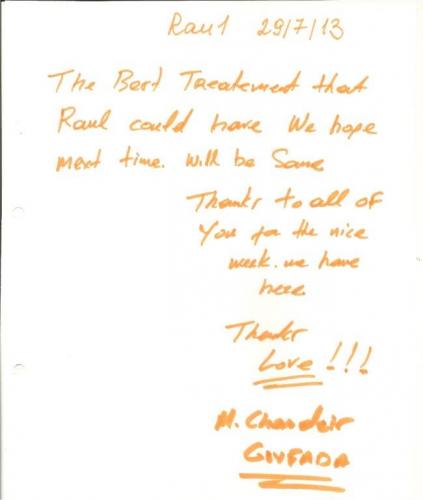 Raul 29/7/13
The Best Treatement that
Raul could have We hope
next time. Will be Same
Thanks to all of
You for the nice
week. we have
here
Thanks
Love!!!
M. Chandeir
GIVFADA